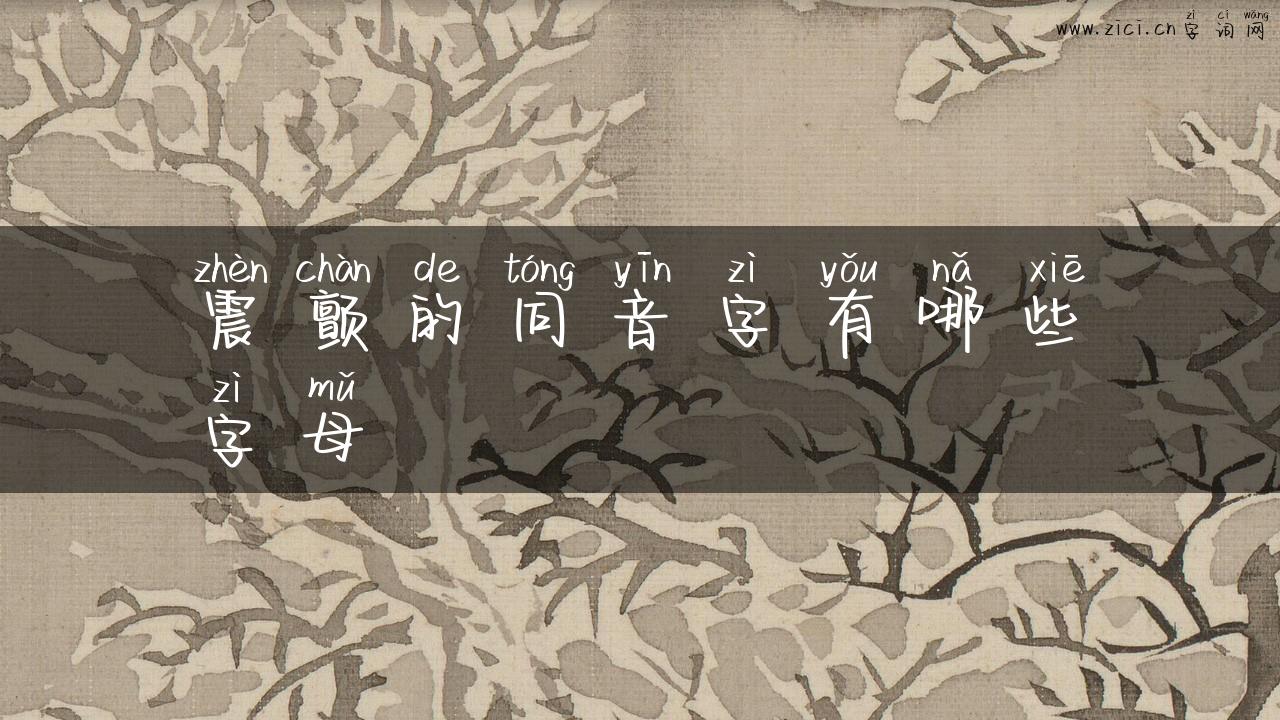 zì cí wǎng
www.zici.cn 字词网
zhèn chàn de tóng yīn zì yǒu nǎ xiē
震颤的同音字有哪些
zì mǔ
字母